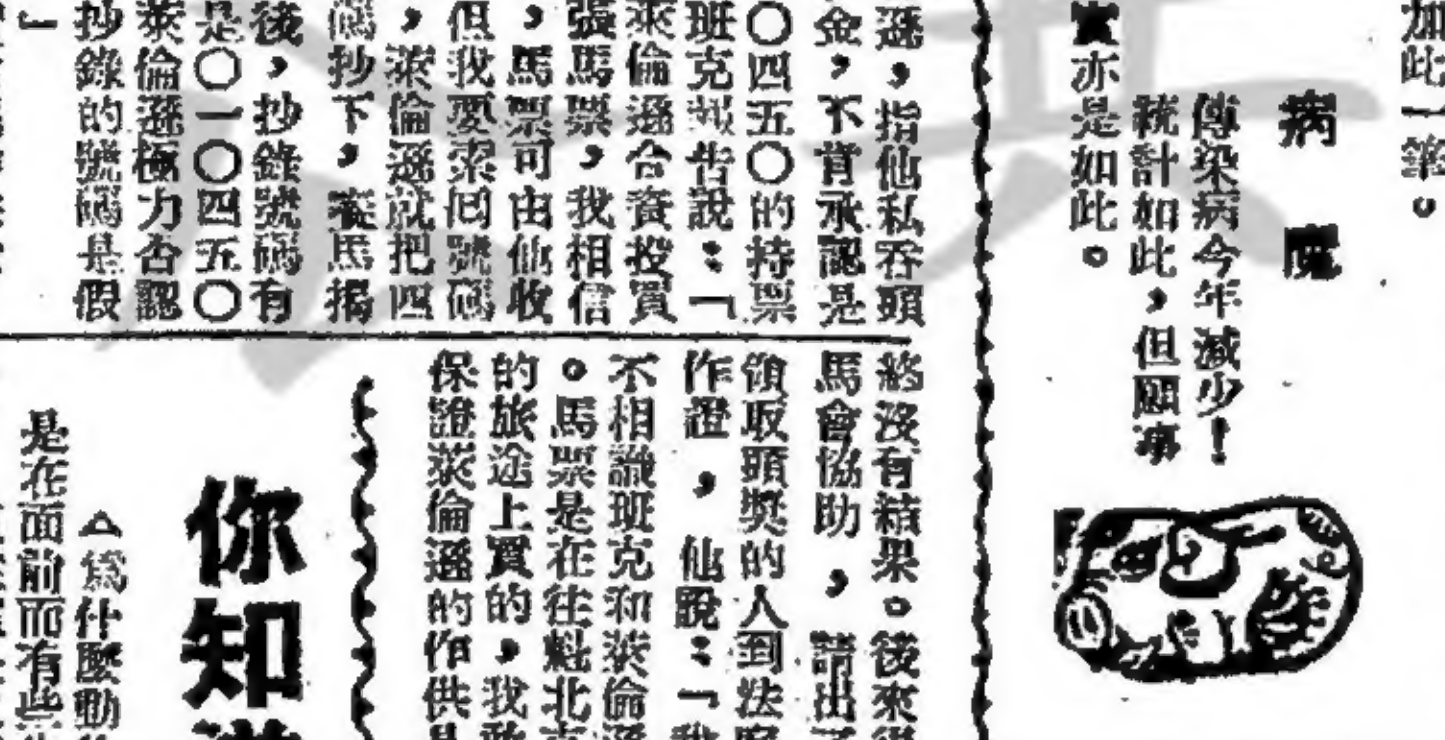 加此一筆。
病魔
傳染病今年減少！
統計如此，但願事
實亦是如此。
遜，指他私吞頭
金，不肯承認是
〇四五〇的持票
班克報告說：「
萊倫遜合資投買
張馬票，我相信
，馬票可由他收
但我要索回號碼
，萊倫遜就把四
碼抄下，賽馬揭
後，抄錄號碼有
是〇一〇四五〇
萊倫遜極力否認
抄錄的號碼是假
」
終沒有結果。後來
馬會協助，請出
領取頭獎的人到法
作證，他說：「我
不相識班克和萊倫遜
。馬票是在往魁北
的旅途上買的，我敢
保證萊倫遜的作供
你知
△為什麼動
是在面前而有些